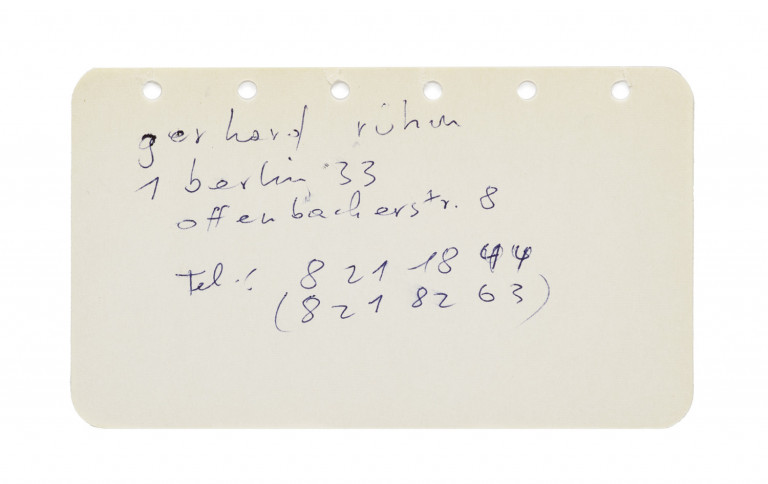 gerhard rühm
1 berlin 33
offenbacherstr. 8
tel.: 8 21 18 44
(8 21 82 63)